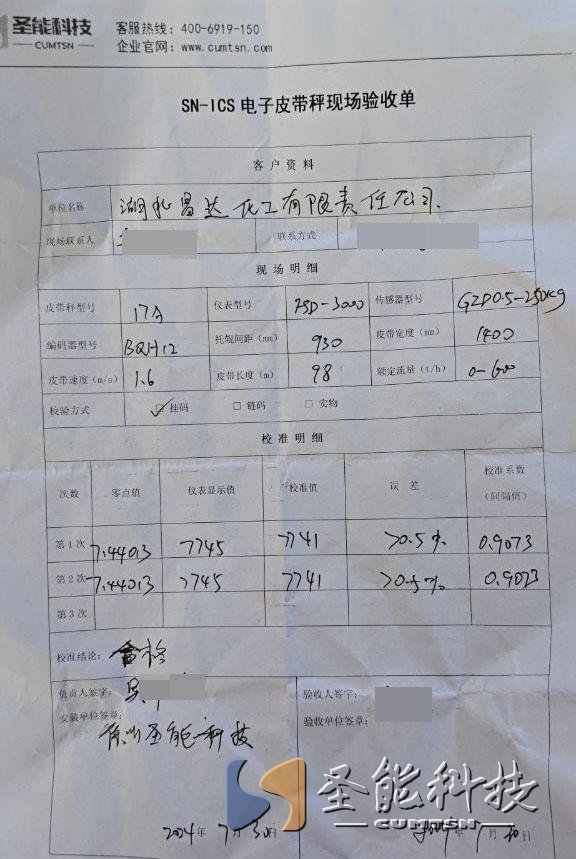 圣能科技
CUMTSN
客服热线：400-6919-150
企业官网：www.cumtsn.com
SN-ICS 电子皮带秤现场验收单
客户资料
单位名称 湖北昌达化工有限责任公司.
现场联系人 联系方式
现场明细
皮带秤型号 17A 仪表型号 PSD-3000 传感器型号 GZPD0.5-250kg
编码器型号 BQH12 托辊间距（mm） 930 皮带宽度（mm） 1400
皮带速度（m/s） 1.6 皮带长度（m） 98 额定流量（t/h） 0-600
校验方式 ☑ 挂码 □ 链码 □ 实物
校准明细
次数 零点值 仪表显示值 校准值 误 差 校准系数（间隔值）
第1次 7.44013 7745 7741 >0.5% 0.9073
第2次 7.44013 7745 7741 >0.5% 0.9073
第3次
校准结论： 合格
负责人签字： 吴 验收人签字：
安装单位签章： 徐州圣能科技 验收单位签章：
2024年 7月30日 2024年 7月30日
圣能科技